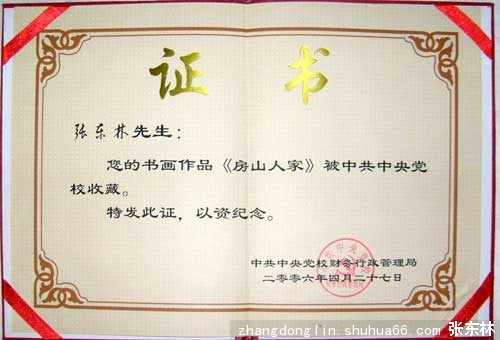 证 书
张东林先生：
您的书画作品《房山人家》被中共中央党
校收藏。
特发此证，以资纪念。
中共中央党校财务行政管理局
二零零六年四月二十七日
zhangdonglin.shuhua66.com 张东林